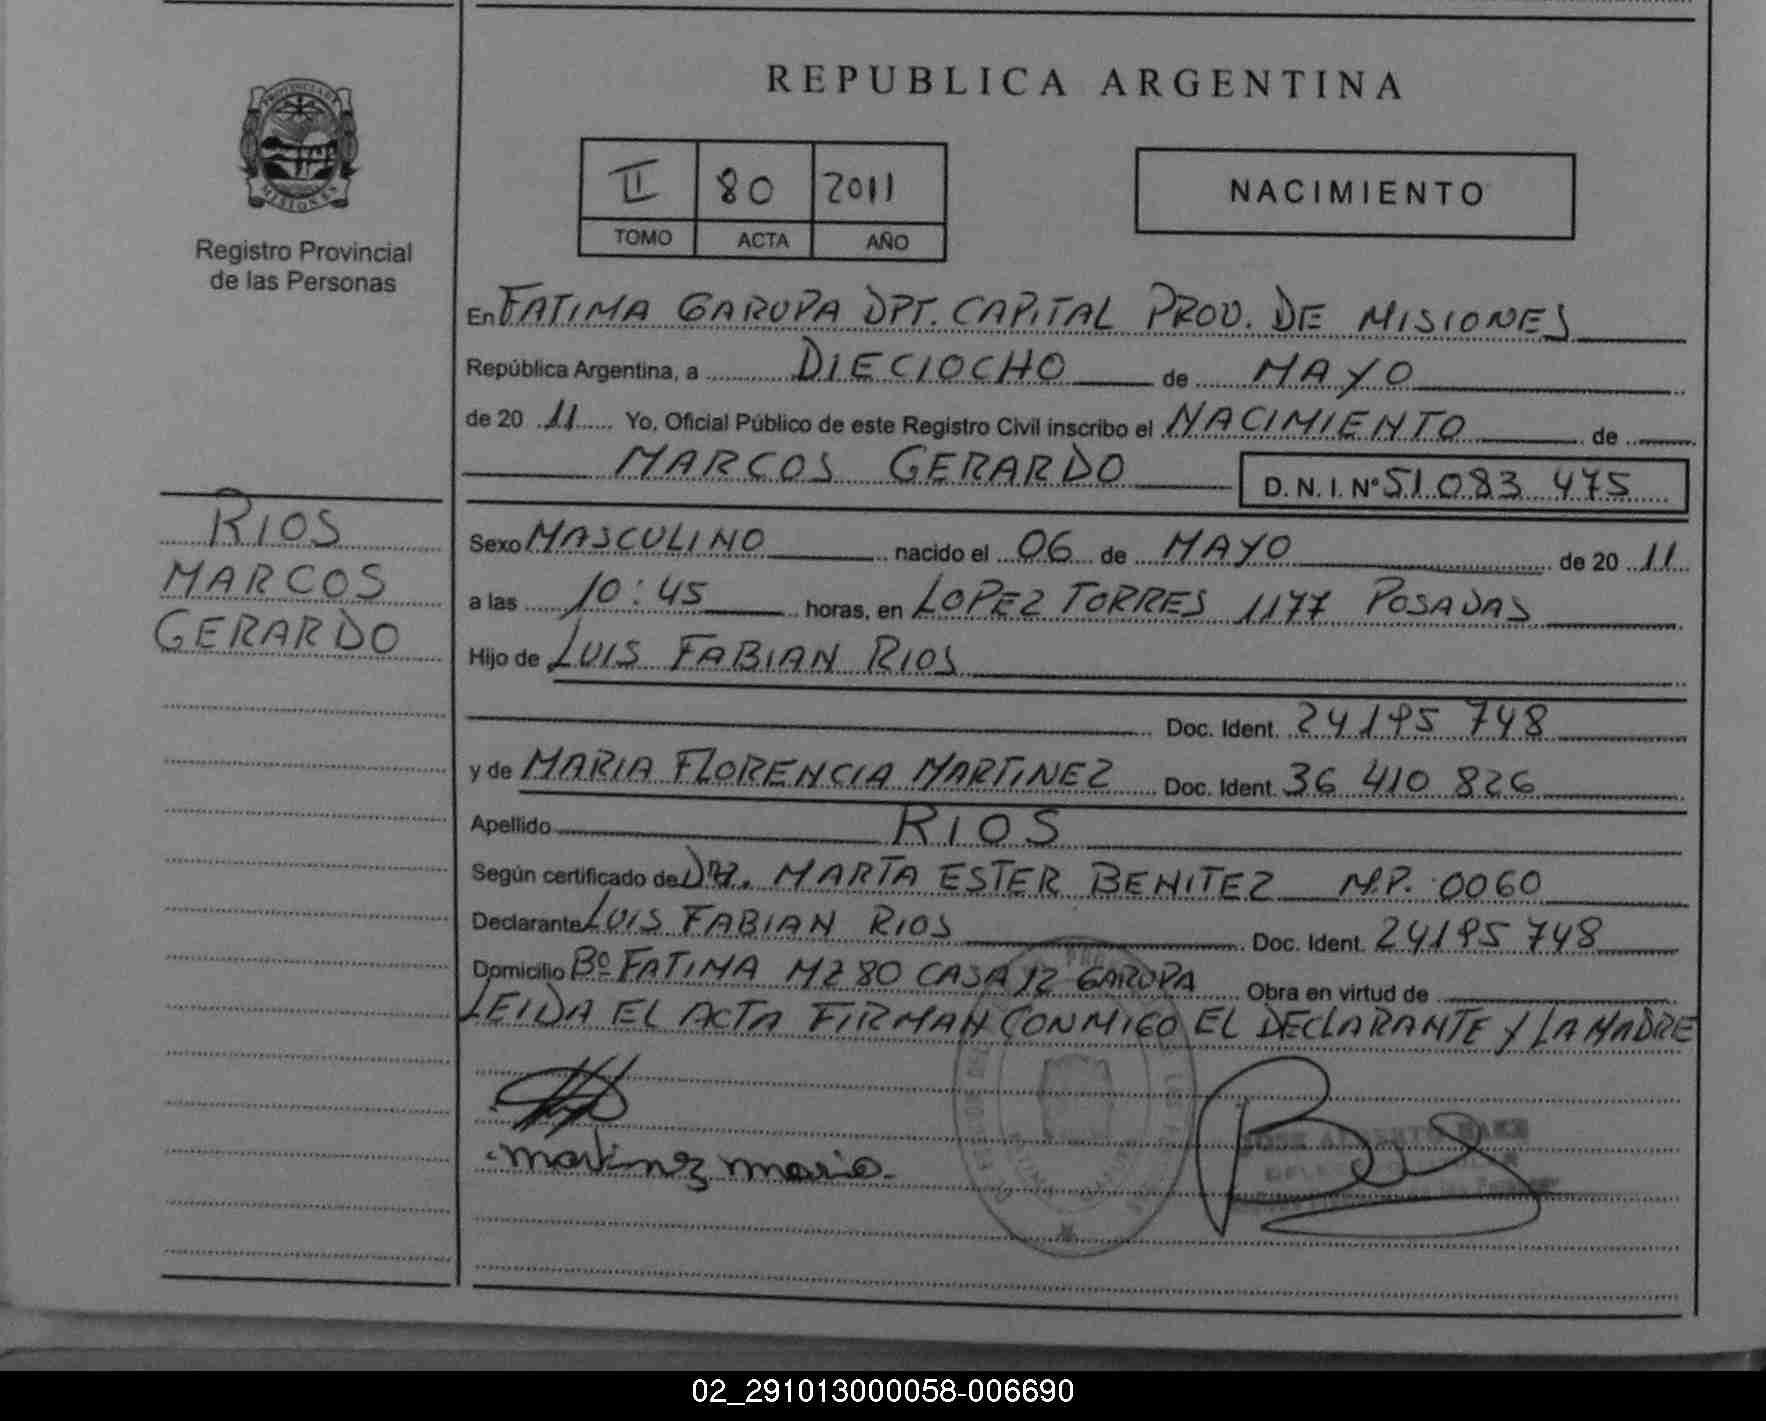 REPUBLICA ARGENTINA
PROVINCIA DE
MISIONES
Registro Provincial
de las Personas
II 80 2011
TOMO ACTA AÑO
NACIMIENTO
En FATIMA GARUPA DPT. CAPITAL PROV. DE MISIONES
República Argentina, a DIECIOCHO de MAYO
de 20 11 Yo, Oficial Público de este Registro Civil inscribo el NACIMIENTO de
MARCOS GERARDO D.N.I. Nº 51.083 475
RIOS
MARCOS
GERARDO
Sexo MASCULINO nacido el 06 de MAYO de 20 11
a las 10:45 horas, en LOPEZ TORRES 1177 POSADAS
Hijo de LUIS FABIAN RIOS
Doc. Ident. 24195 748
y de MARIA FLORENCIA MARTINEZ Doc. Ident. 36 410 826
Apellido RIOS
Según certificado de DRA. MARTA ESTER BENITEZ M.P. 0060
Declarante LUIS FABIAN RIOS Doc. Ident. 24195 748
Domicilio Bº FATIMA MZ 80 CASA 12 GARUPA Obra en virtud de
LEIDA EL ACTA FIRMAN CONMIGO EL DECLARANTE Y LA MADRE
Martinez Maria
02_291013000058-006690